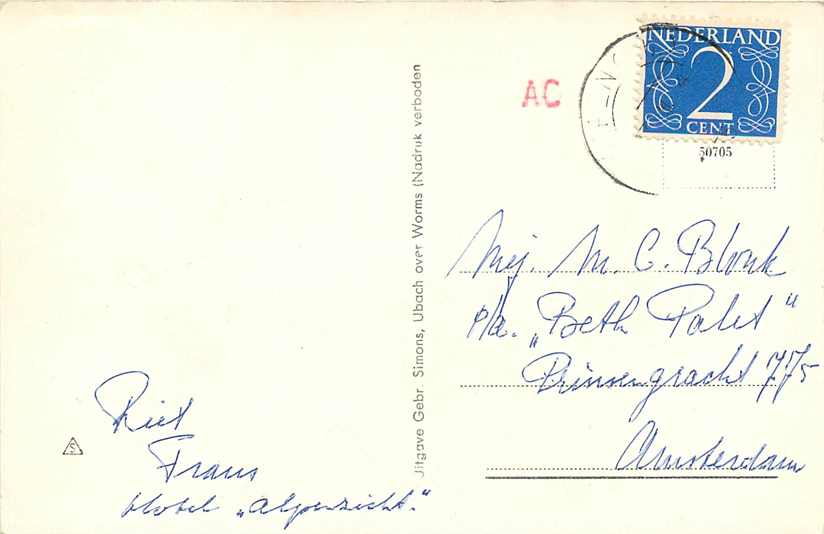 NEDERLAND
2
CENT
50705
AC
Mej. M. C. Blonk
p/a. „Beth Palet"
Prinsengracht 775
Amsterdam
Riet
Frans
Hotel „Alpenzicht."
Uitgave Gebr. Simons, Ubach over Worms (Nadruk verboden
S